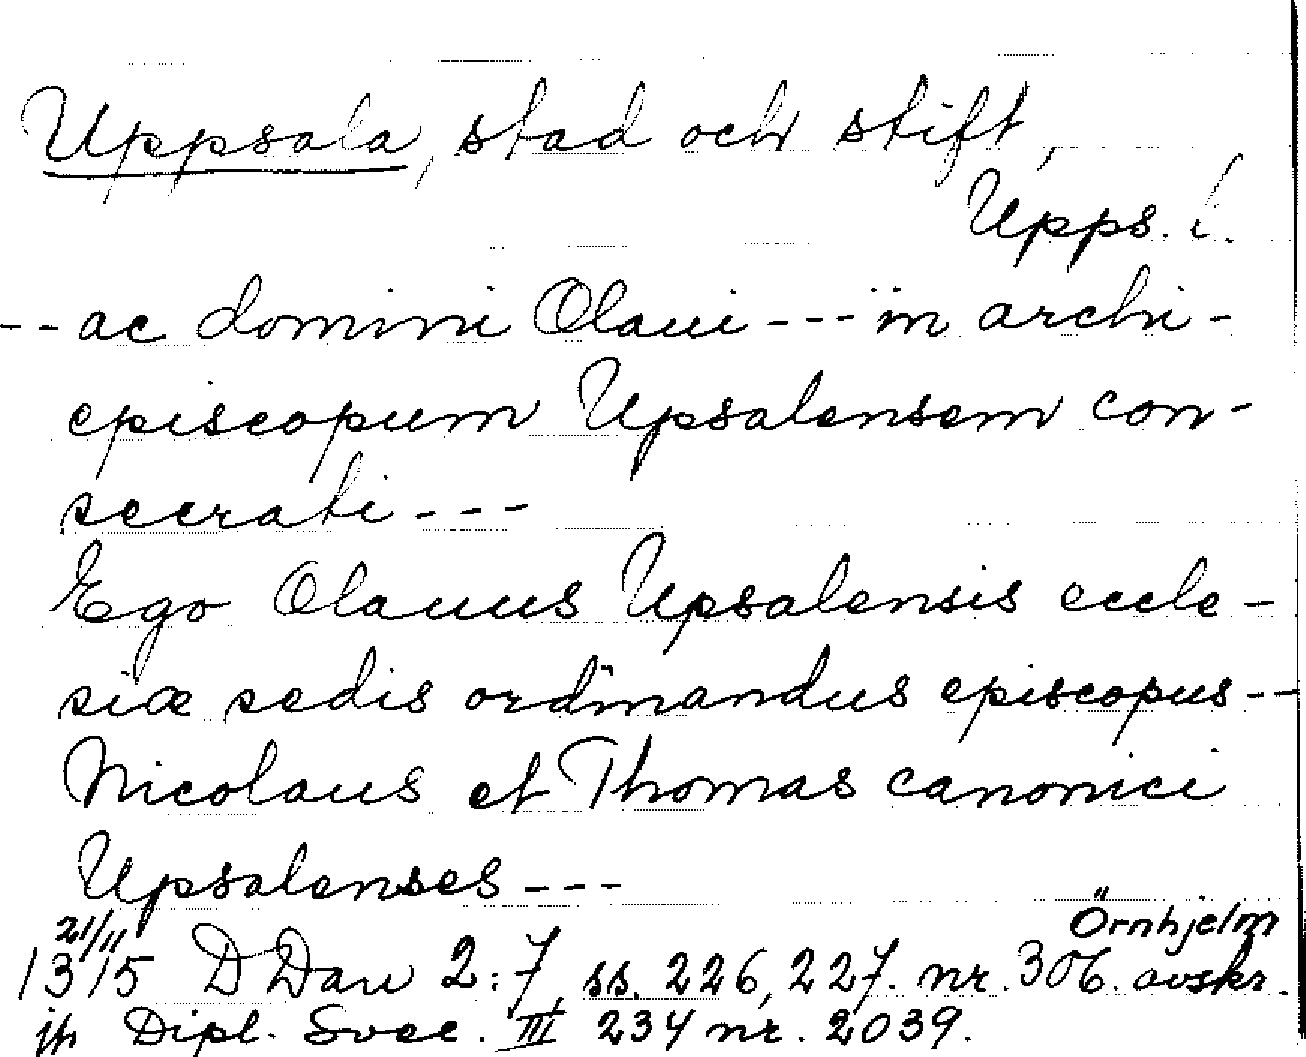 Uppsala, stad och stift,
Upps. l.
-- ac domini Olaui --- in archi-
episcopum Upsalensem con-
secrati ---
Ego Olauus Upsalensis eccle-
siæ sedis ordinandus episcopus --
Nicolaus et Thomas canonici
Upsalenses ---
21/11 Örnhjelm
1315 D Dan 2:7, ss. 226, 227. nr. 306. avskr.
jfr Dipl. Svec. III 234 nr. 2039.